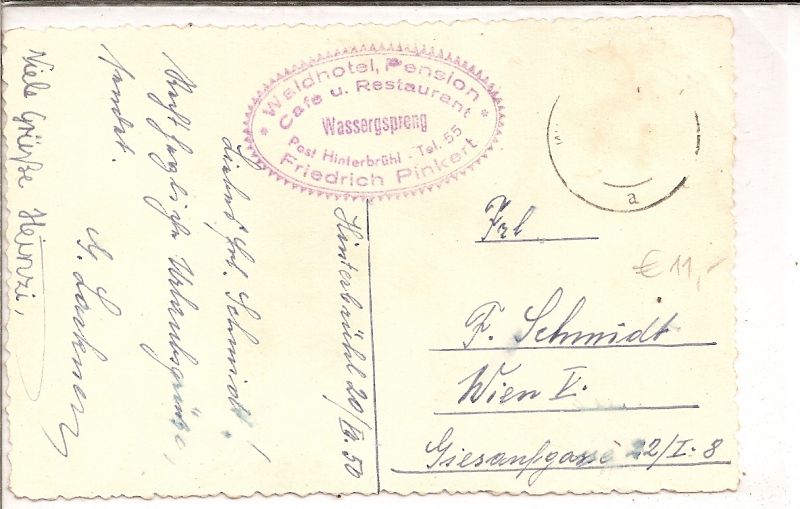 Waldhotel, Pension
Cafe u. Restaurant
Wassergspreng
Post Hinterbrühl - Tel. 55
Friedrich Pinkert
Hinterbrühl 20/VI. 50
Liebes Frl. Schmidt!
Recht herzliche Urlaubsgrüße,
sendet.
G. Lackner
Viele Grüße Heinzi,
a
Frl
F. Schmidt
Wien V.
Giesaufgasse 22/I. 8
€ 11,-